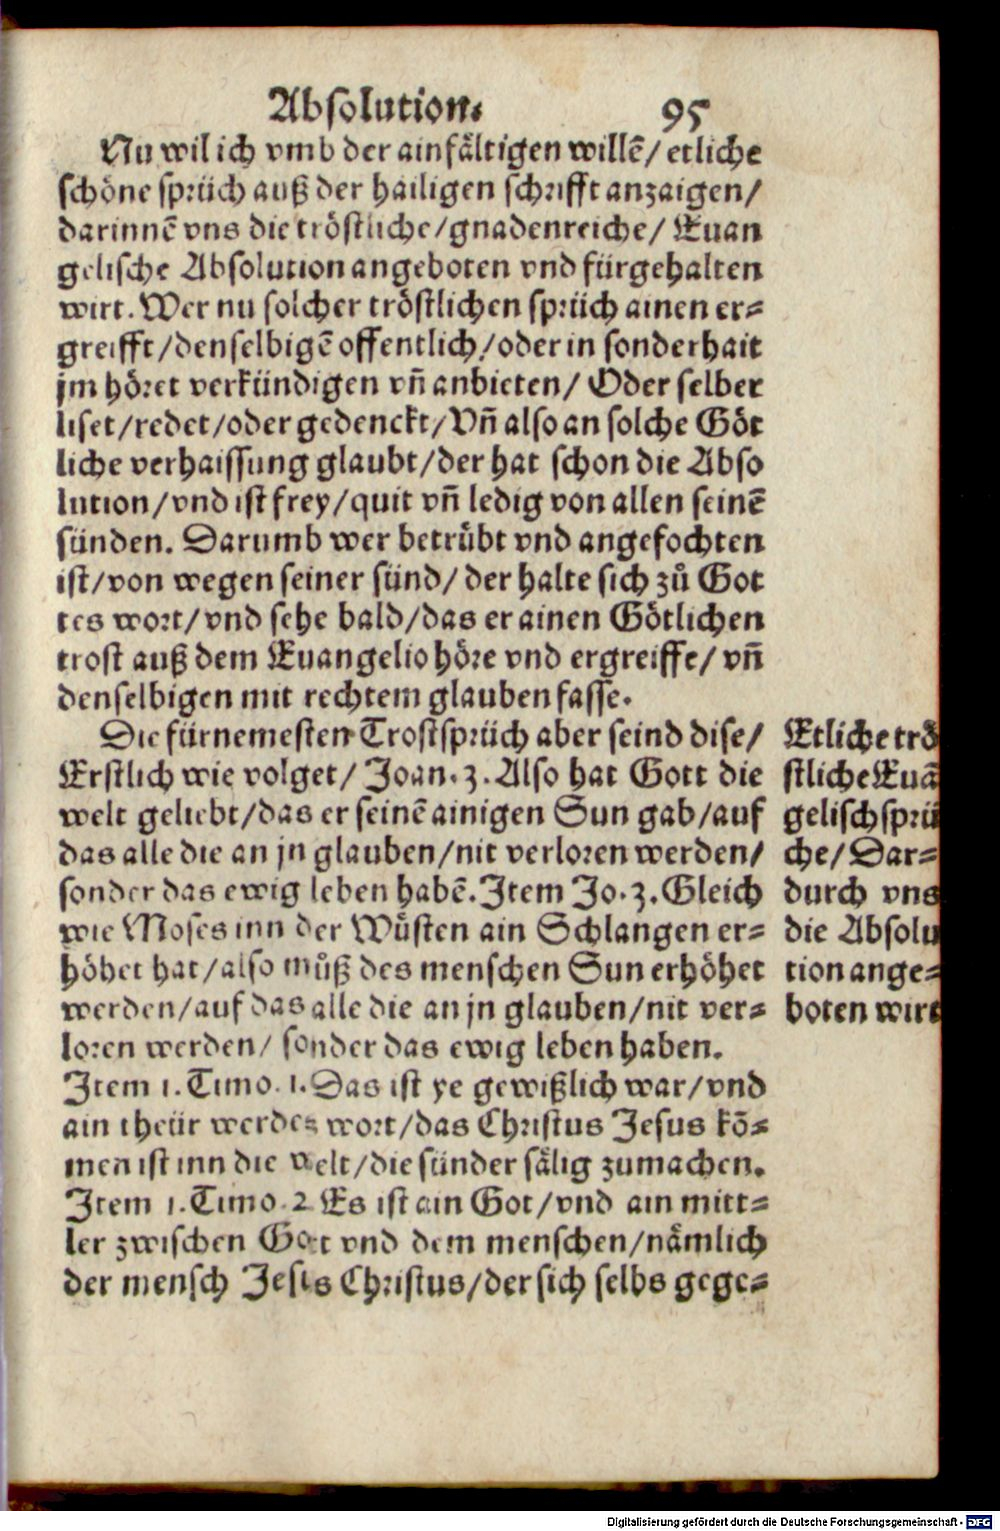 Absolution. 95
Nu wil ich vmb der ainfältigen willē/ etliche
schöne sprüch auß der hailigen schrifft anzaigen/
darinnē vns die tröstliche/gnadenreiche/ Euan
gelische Absolution angeboten vnd fürgehalten
wirt. Wer nu solcher tröstlichen sprüch ainen er⸗
greifft/denselbigē offentlich/oder in sonderhait
jm höret verkündigen vñ anbieten/ Oder selber
liset/redet/oder gedenckt/Vñ also an solche Göt
liche verhaissung glaubt/der hat schon die Abso
lution/vnd ist frey/quit vñ ledig von allen seinē
sünden. Darumb wer betrübt vnd angefochten
ist/von wegen seiner sünd/der halte sich zů Got
tes wort/vnd sehe bald/das er ainen Götlichen
trost auß dem Euangelio höre vnd ergreiffe/ vñ
denselbigen mit rechtem glauben fasse.
Die fürnemesten Trostsprüch aber seind dise/
Erstlich wie volget/ Joan. 3. Also hat Gott die
welt geliebt/das er seinē ainigen Sun gab/auf
das alle die an jn glauben/nit verloren werden/
sonder das ewig leben habē. Item Jo. 3. Gleich
wie Moses inn der Wüsten ain Schlangen er⸗
höhet hat/also můß des menschen Sun erhöhet
werden/auf das alle die an jn glauben/nit ver⸗
loren werden/ sonder das ewig leben haben.
Item 1. Timo. 1. Das ist ye gewißlich war/vnd
ain theür werdes wort/das Christus Jesus kō⸗
men ist inn die welt/die sünder sälig zumachen.
Item 1. Timo. 2 Es ist ain Got/vnd ain mitt⸗
ler zwischen Gott vnd dem menschen/nämlich
der mensch Jesus Christus/der sich selbs gege⸗
Etliche trö
stliche Euā
gelisch sprü
che/Dar⸗
durch vns
die Absolu
tion ange⸗
boten wirt
Digitalisierung gefördert durch die Deutsche Forschungsgemeinschaft - DFG